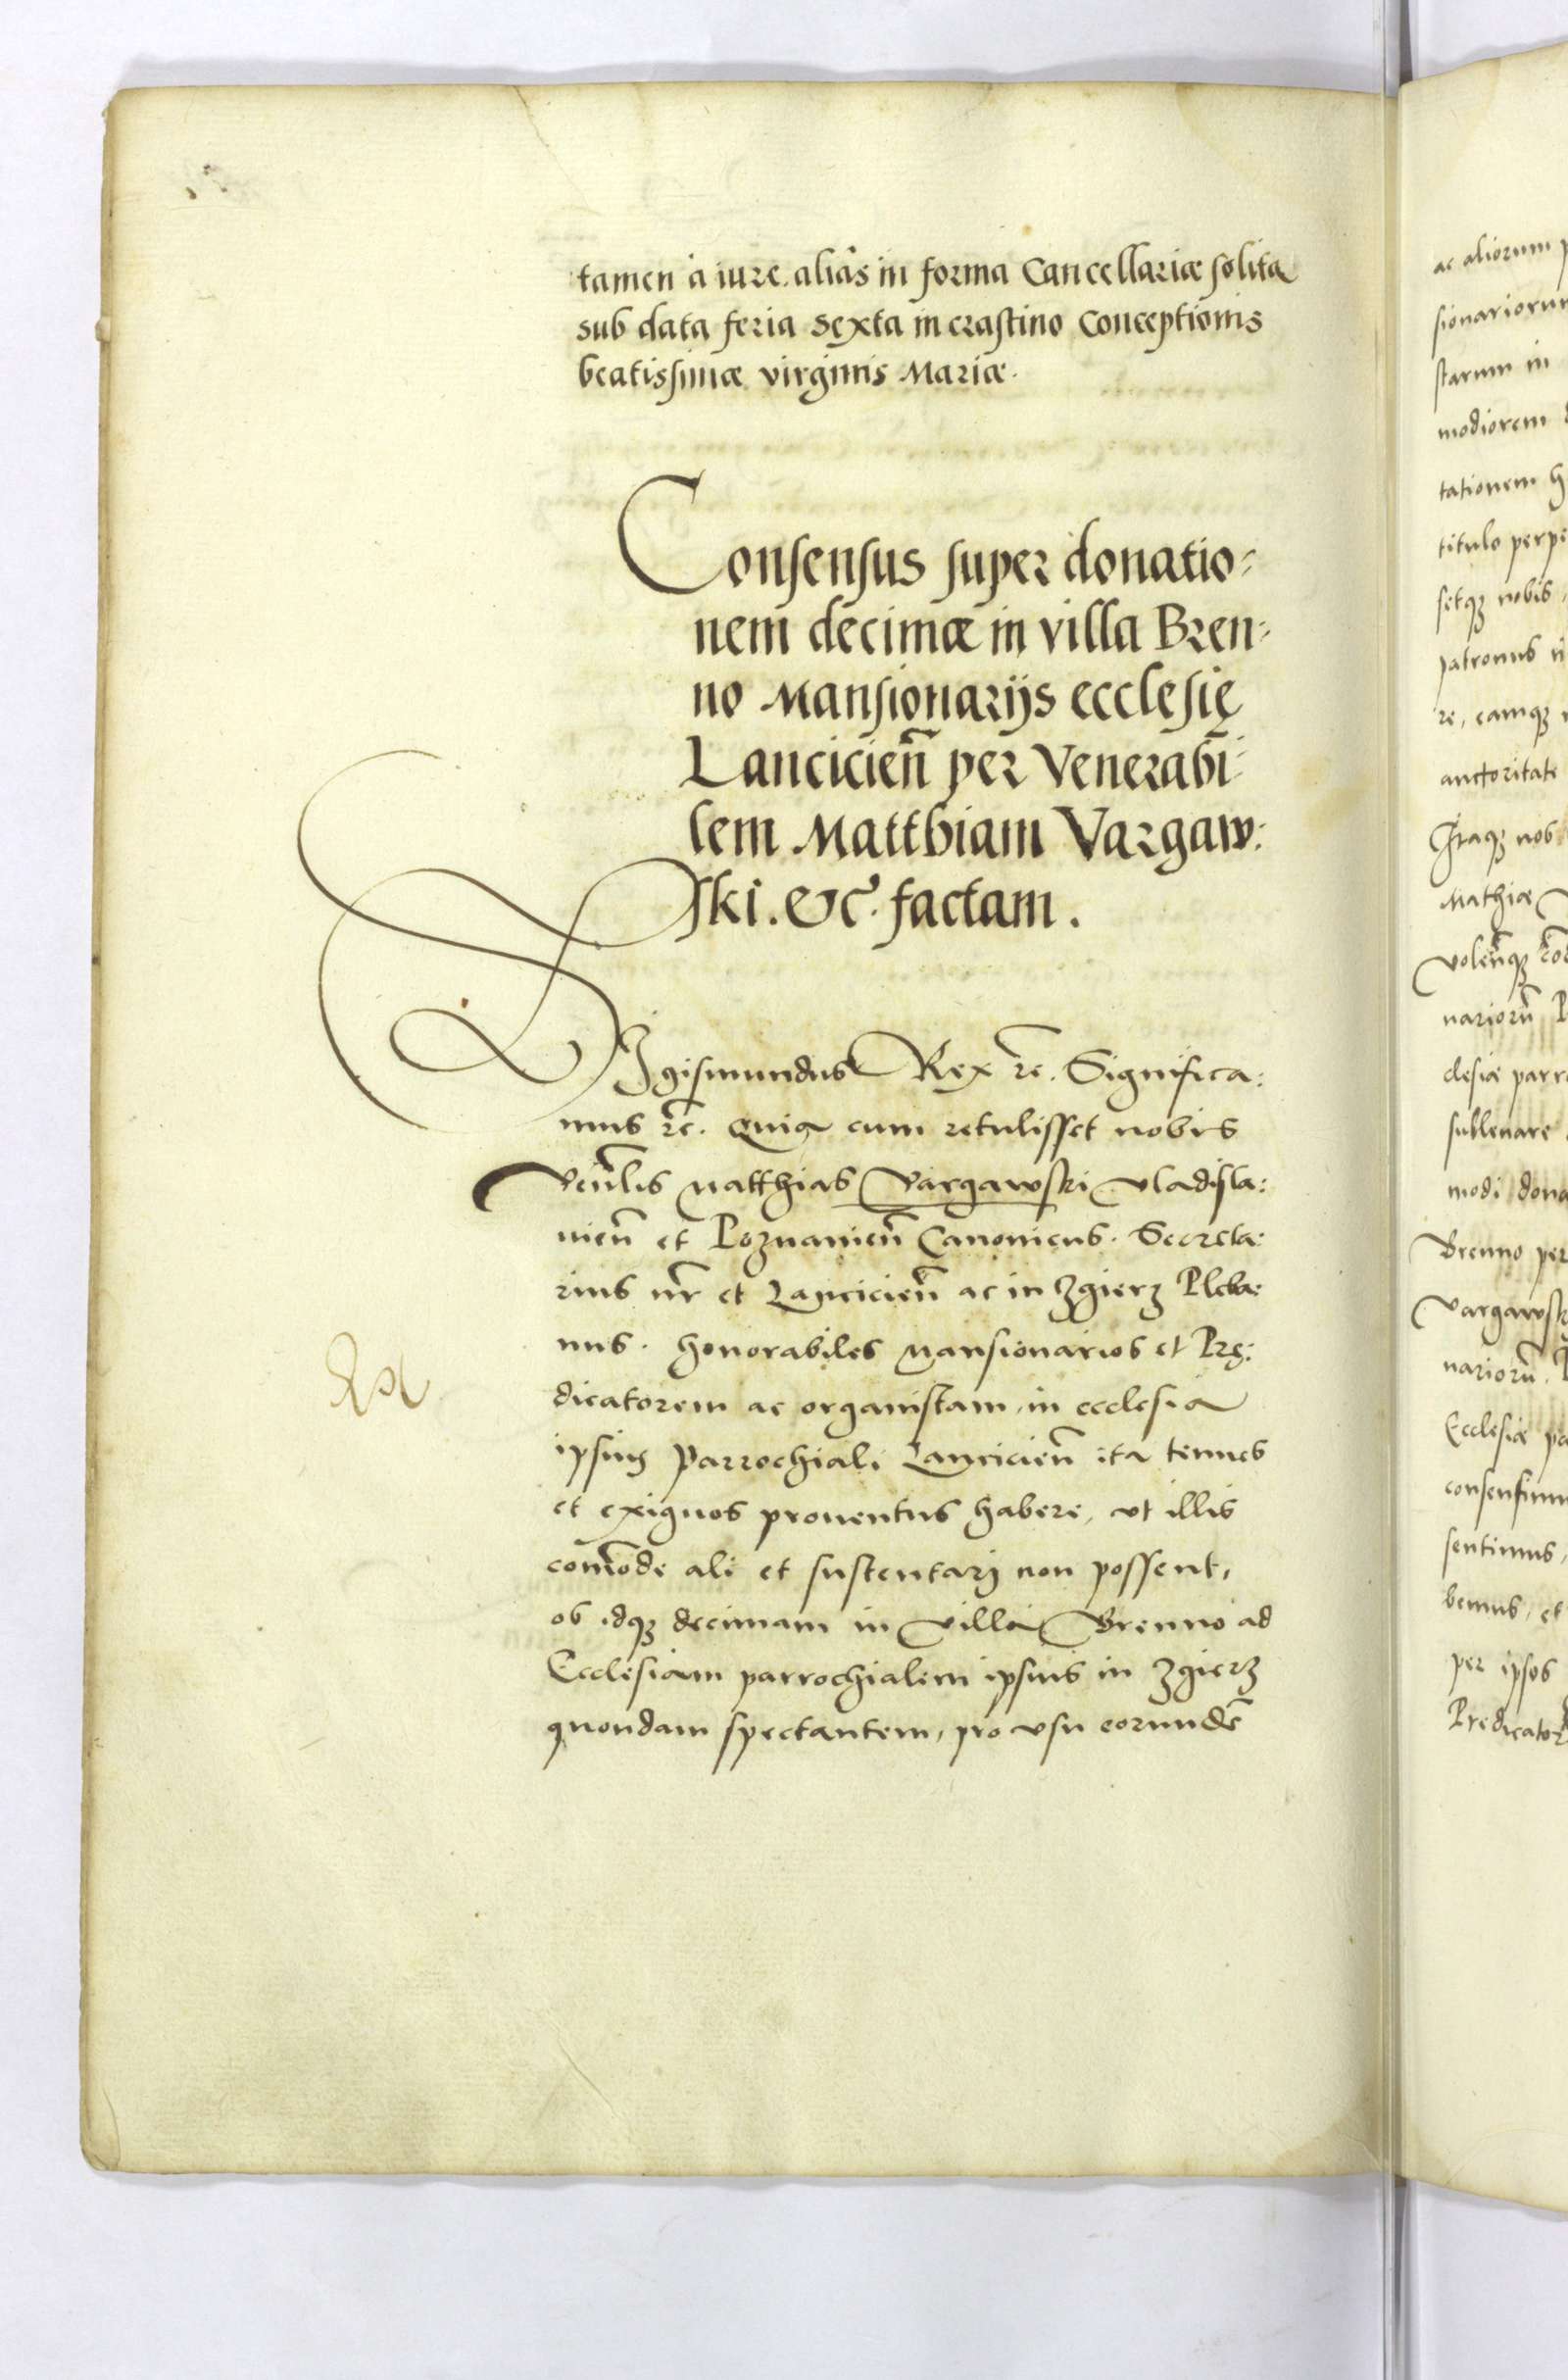 tamen à iure. aliàs in forma Cancellariæ solita
sub data feria sexta in crastino Conceptionis
beatissimæ virginis Mariæ.
Consensus super donatio=
nem decimæ in villa Bren=
no Mansionarijs ecclesię
Lancicien̄ per Venerabi=
lem Matthiam Vargaw:
ski. &c. factam.
SIgismundus Rex rc. Significa:
mus rc. Quia cum retulisset nobis
Ven̄lis Matthias Vargawski Vladisla:
uien̄ et Poznanien̄ Canonicus. Secreta:
rius nr̄ et Lancicien̄ ac in Zgierz Pleba:
nus. honorabiles Mansionarios et Prę:
dicatorem ac organistam in ecclesia
ipsius Parrochiali Lancicien̄ ita tenues
et exiguos prouentus habere, vt illis
com̄ode ali et sustentarj non possent,
ob idq; decimam in villa Brenno ad
Ecclesiam parrochialem ipsius in Zgierz
quondam spectantem, pro vsu eorundē
ac aliorum
sionariorum
starum in
modiorem
tationem
titulo perpe
setq; nobis
patronus
re, eamq;
auctoritate
Itaq; nos
Mathiæ
volen̄q;
nariorū
clesiæ parr
subleuare
modi dona
Brenno per
Vargawsk
nariorū.
Ecclesiæ pa
consensum
sentimus,
bemus, et
per ipsos
Predicator